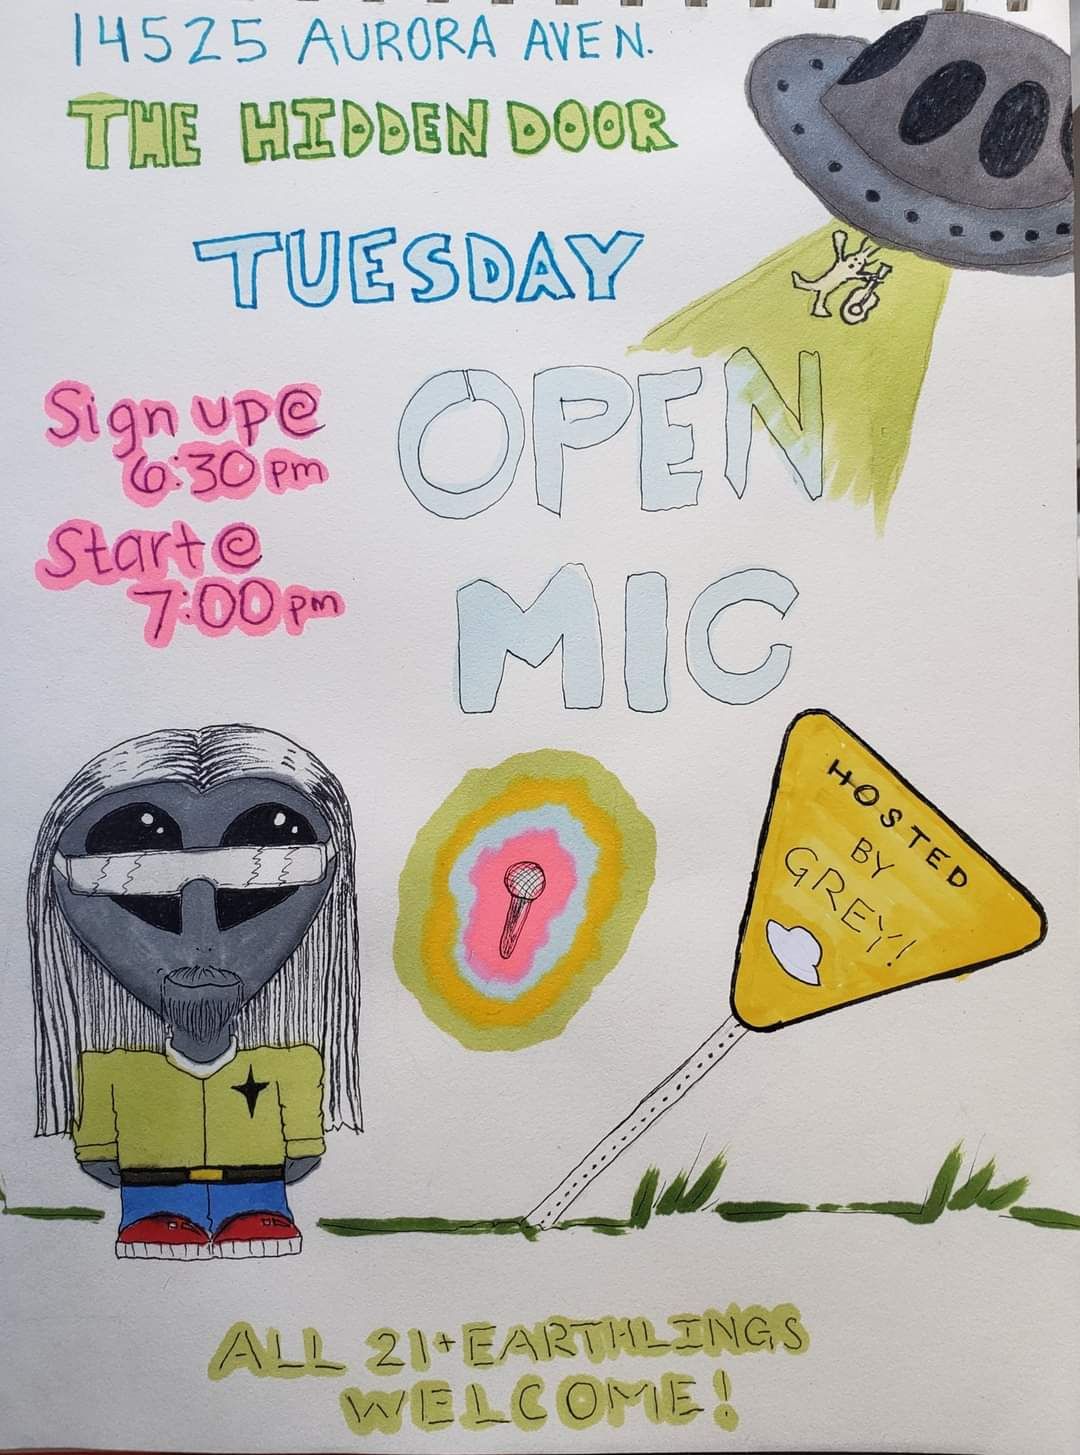 14525 AURORA AVE N.
THE HIDDEN DOOR
TUESDAY
Sign up@
6:30 pm
Start@
7:00 pm
OPEN
MIC
HOSTED
BY
GREY!
ALL 21+ EARTHLINGS
WELCOME!